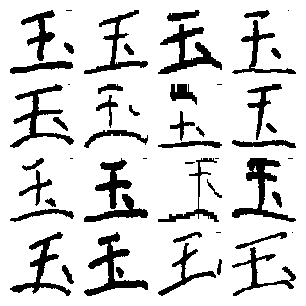 玉 玉 玉 玉
玉 玉 玉 玉
玉 玉 玉 玉
玉 玉 玉 玉